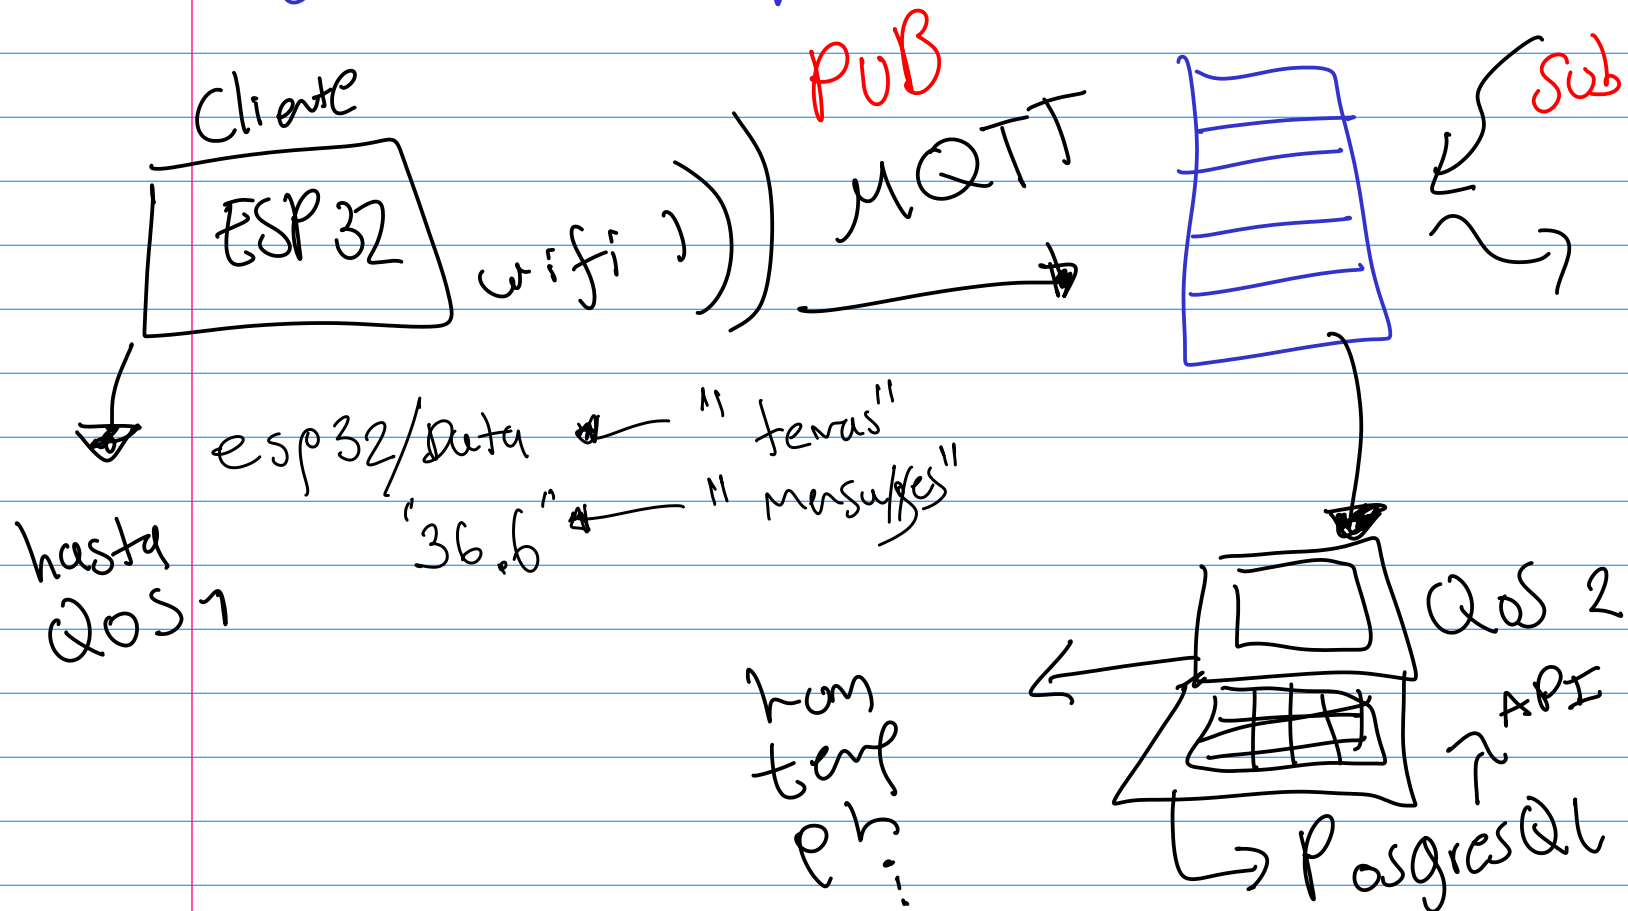 Cliente
ESP32
wifi
PUB
MQTT
Sub
esp32/Data
"temas"
"36.6"
"mensajes"
hasta
QOS 1
QoS 2
hum
temp
ph
API
PosgresQL